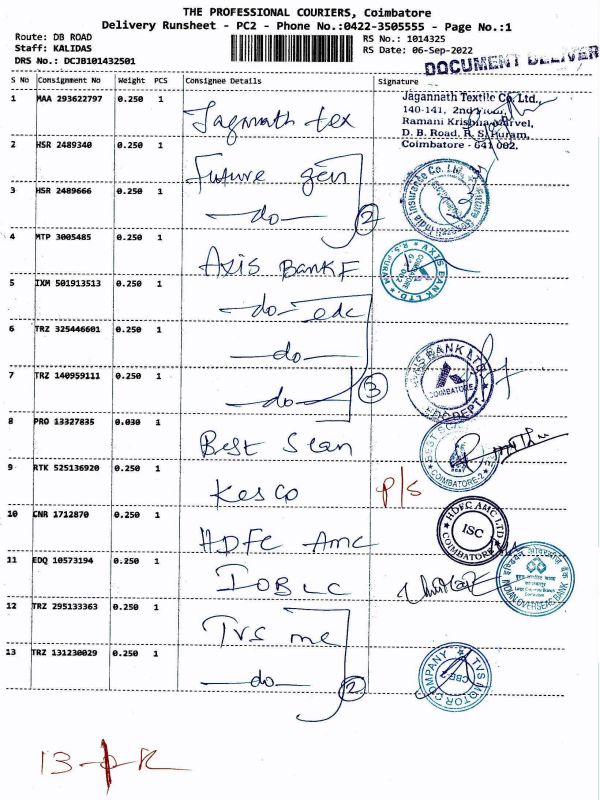 THE PROFESSIONAL COURIERS, Coimbatore
Delivery Runsheet - PC2 - Phone No.:0422-3505555 - Page No.:1
Route: DB ROAD
RS No.: 1014325
Staff: KALIDAS
RS Date: 06-Sep-2022
DRS No.: DCJB101432501
DOCUMENT DELIVER
S No Consignment No Weight PCS Consignee Details Signature
1 MAA 293622797 0.250 1 Jagannath tex
Jagannath Textile Co. Ltd.,
140-141, 2nd Floor,
Ramani Krishna Marvel,
D. B. Road, R. S. Puram,
Coimbatore - 641 002.
2 HSR 2489340 0.250 1 Future gen
3 HSR 2489666 0.250 1 —do— 2
4 MTP 3005485 0.250 1 Axis Bank F
AXIS BANK LTD. R.S. PURAM
5 IXM 501913513 0.250 1 —do— edc
6 TRZ 325446601 0.250 1 —do—
AXIS BANK LTD.
COIMBATORE
EDC DEPT.
7 TRZ 140959111 0.250 1 —do— 3
8 PRO 13327835 0.030 1 Best Scan
COIMBATORE-2
9 RTK 525136920 0.250 1 Kesco P/S
10 CNR 1712870 0.250 1 HDFC AMC
HDFC AMC LTD
ISC
COIMBATORE
11 EDQ 10573194 0.250 1 IOB LC
INDIAN OVERSEAS BANK
12 TRZ 295133363 0.250 1 TVS mc
13 TRZ 131230029 0.250 1 —do— 2
TVS MOTOR COMPANY
CBE
13